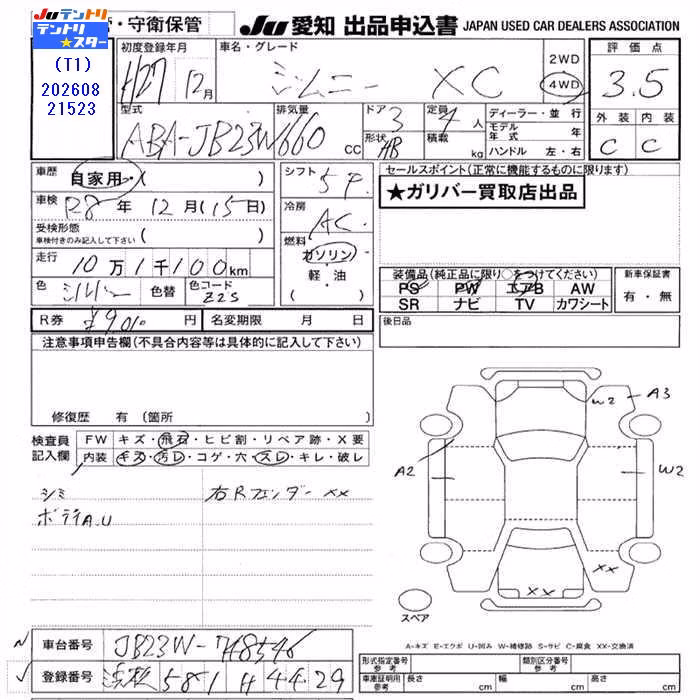 Juテントリ
テントリ★スター
(T1)
202608
21523
・守衛保管
JU 愛知 出品申込書 JAPAN USED CAR DEALERS ASSOCIATION
初度登録年月
H27 12月
車名・グレード
ジムニー XC
2WD
4WD
評価点
3.5
外装 内装
C C
型式
ABA-JB23W
排気量
660 cc
ドア 3
形状 HB
定員 4 人
積載 kg
ディーラー・並行
モデル年式 年
ハンドル 左・右
車歴 自家用・( )
車検 R8 年 12 月(15日)
受検形態
車検付きのみ記入して下さい ( )
走行 10万1千100km
色 シルバー 色替 色コード Z2S
シフト 5F
冷房 AC
燃料
ガソリン
軽・油
( )
セールスポイント(正常に機能するものに限ります)
★ガリバー買取店出品
装備品(純正品に限り○をつけてください)
PS PW エアB AW
SR ナビ TV カワシート
新車保証書
有・無
R券 ¥9010 円 名変期限 月 日
後日品
注意事項申告欄(不具合内容等は具体的に記入して下さい)
修復歴 有 (箇所
検査員
記入欄
FW キズ・飛石・ヒビ割・リペア跡・X要
内装 キズ・汚レ・コゲ・穴・スレ・キレ・破レ
シミ
右Rフェンダー XX
ボデーA.U
W2
A3
A2
W2
XX
XX
スペア
A-キズ E-エクボ U-凹み W-補修跡 S-サビ C-腐食 XX-交換済
車台番号 JB23W-748546
登録番号 浜松 581 H 44-29
形式指定番号
参考
類別区分番号
参考
車庫証明用
参考
長さ cm 幅 cm 高さ cm